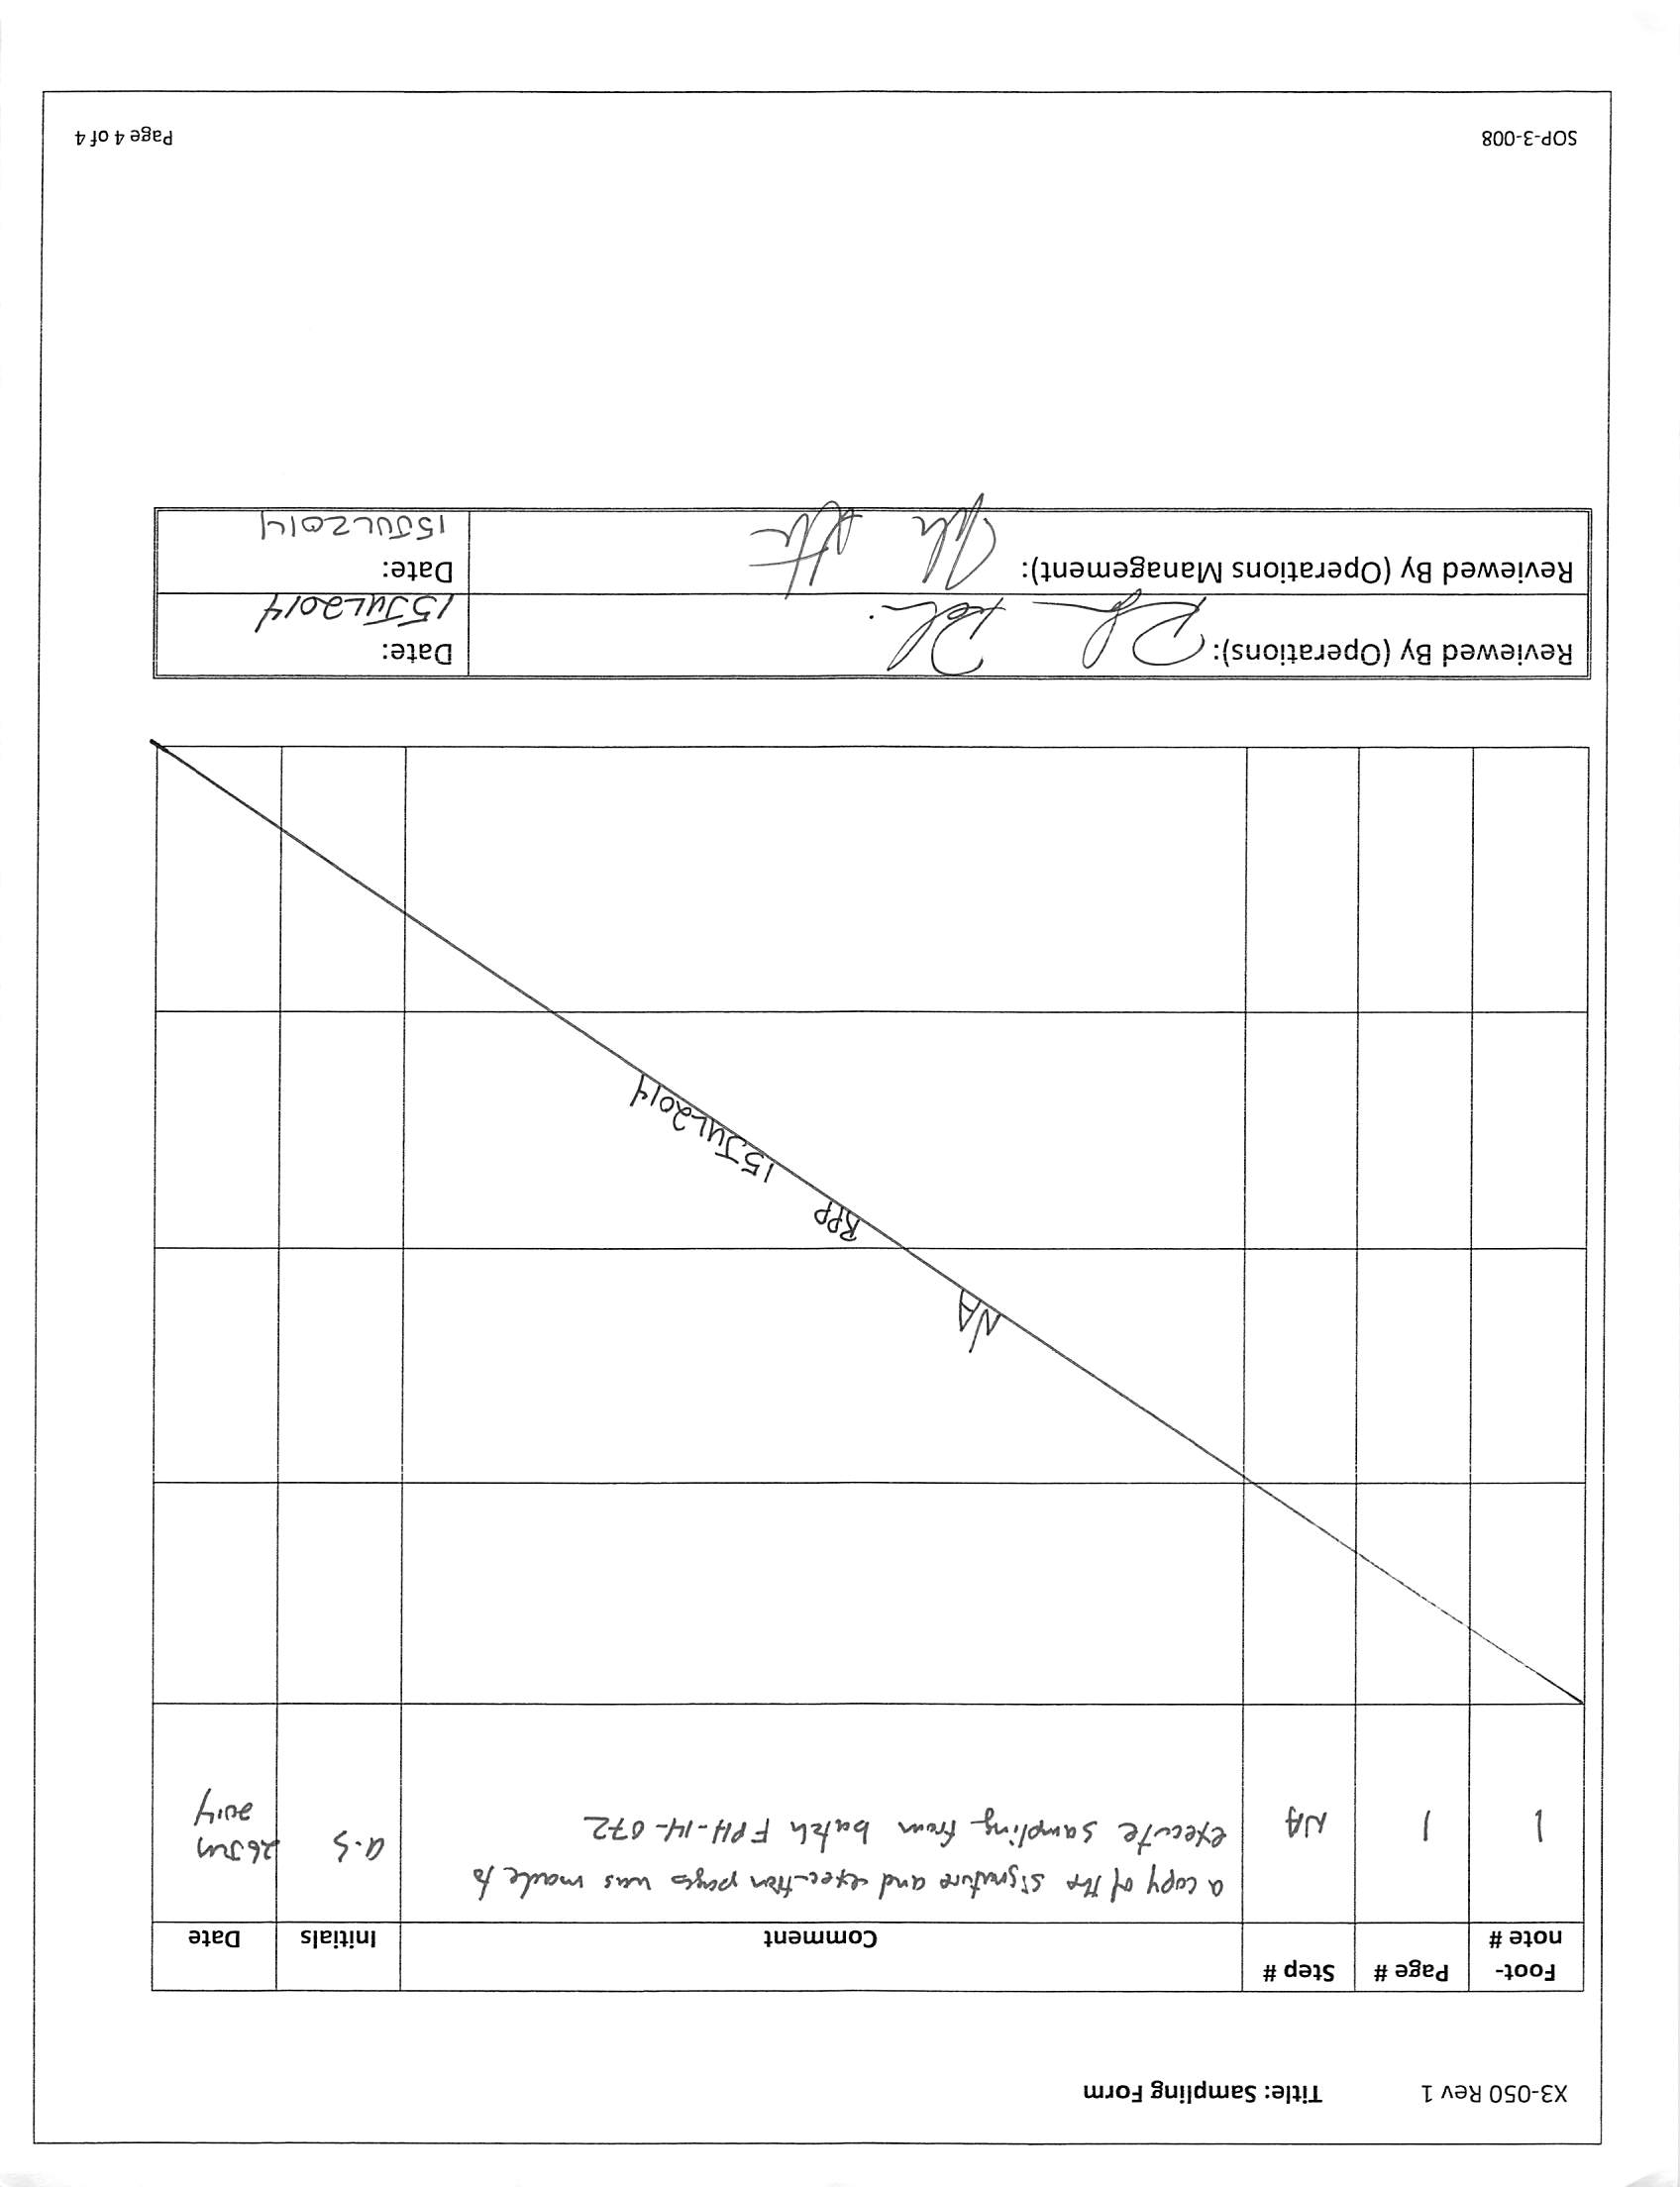 X3-050 Rev 1 Title: Sampling Form
Foot-note # Page # Step # Comment Initials Date
1 1 NA a copy of the signature and execution pages was made to
execute sampling from batch FPH-14-072 a.s 26Jun
2014
NA
RPP
15JUL2014
Reviewed By (Operations): Date:
15JUL2014
Reviewed By (Operations Management): Date:
15JUL2014
SOP-3-008 Page 4 of 4